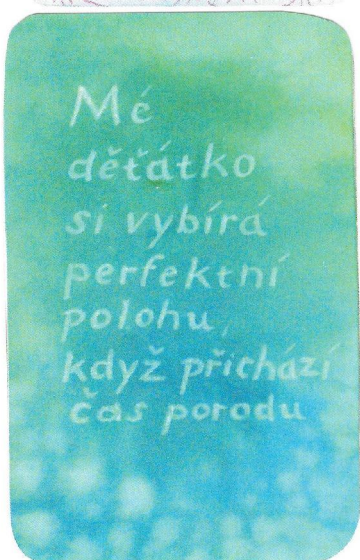 Mé
děťátko
si vybírá
perfektní
polohu,
když přichází
čas porodu